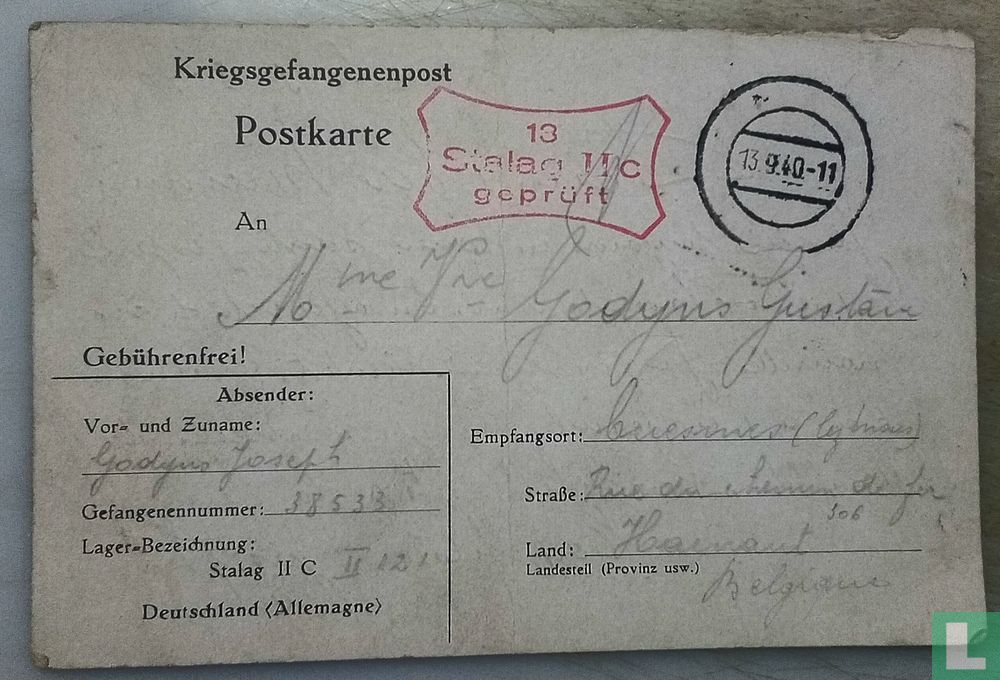 Kriegsgefangenenpost
Postkarte
13
Stalag IIc
geprüft
13.9.40-11
An
Mme Vve Godyns Gustave
Gebührenfrei!
Absender:
Vor- und Zuname:
Godyns Joseph
Gefangenennummer: 38533
Lager-Bezeichnung:
Stalag II C II
Deutschland (Allemagne)
Empfangsort:
Straße: Rue du chemin de fer
106
Land: Hainaut
Landesteil (Provinz usw.)
Belgique
L